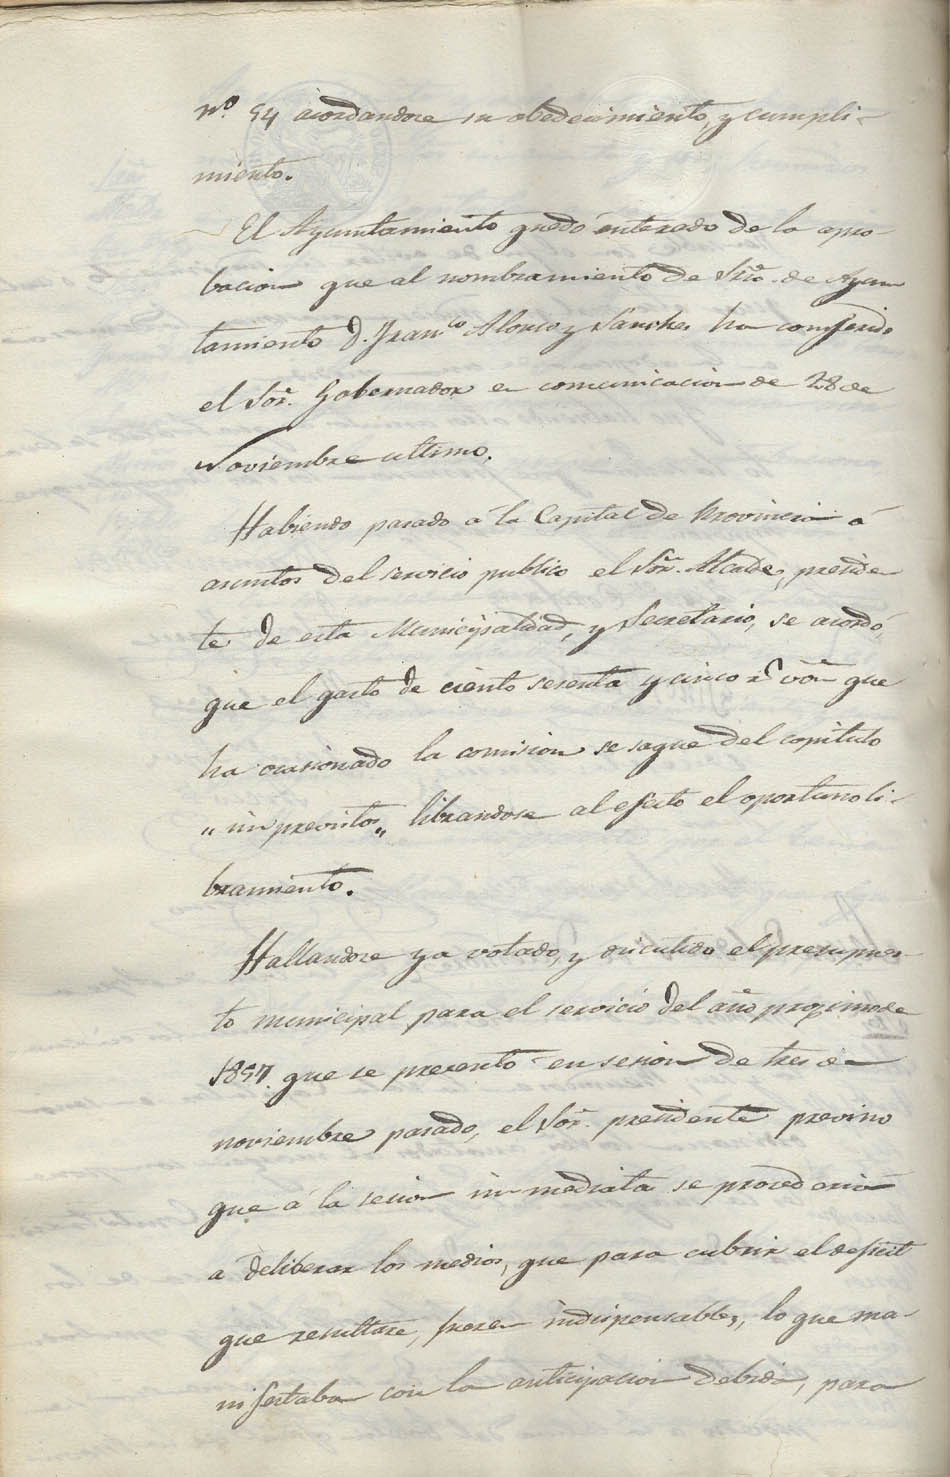 nº. 54 acordandose su obedecimiento, y cumpli-
miento.
El Ayuntamiento quedó enterado de la apro-
bacion que al nombramiento de Srio. de Ayun
tamiento D. Franco. Alonso y Sanchez ha conferido
el Sor. Gobernador en comunicacion de 28 de
Noviembre ultimo.
Habiendo pasado a la Capital de Provincia á
asuntos del servicio publico el Sor. Alcalde, presiden
te de esta Municipalidad, y Secretario, se acordó,
que el gasto de ciento sesenta y cinco rs. von. que
ha ocasionado la comision se saque del capitulo
"imprevistos" librandose al efecto el oportuno li-
bramiento.
Hallandose ya votado, y discutido el presupues-
to municipal para el servicio del año proximo de
1857. que se presentó en sesion de tres de
noviembre pasado, el Sor. presidente previno
que á la sesion inmediata se procederia
a deliberar los medios, que para cubrir el deficit
que resultare, fueren indispensables, lo que ma-
nifestaba con la anticipacion debida, para